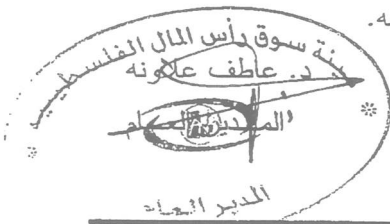 له.
هيئة سوق رأس المال الفلسطينية
د. عاطف علاونه
المدير العام
المدير العام